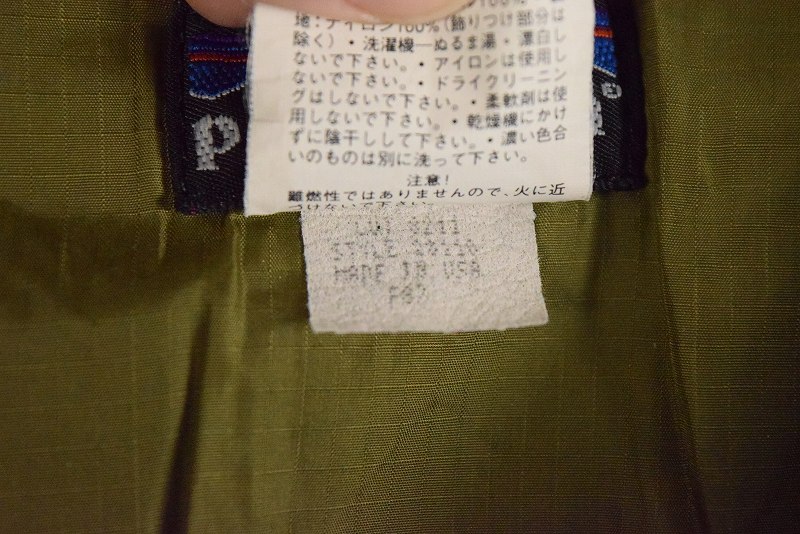 100%
地:ナイロン100%(飾りつけ部分は
除く)・洗濯機―ぬるま湯・漂白し
ないで下さい。・アイロンは使用し
ないで下さい。・ドライクリーニン
グはしないで下さい。・柔軟剤は使
用しないで下さい。・乾燥機にかけ
ずに陰干しして下さい。・濃い色合
いのものは別に洗って下さい。
注意!
難燃性ではありませんので、火に近
づけないで下さい。
p
STYLE
MADE IN USA